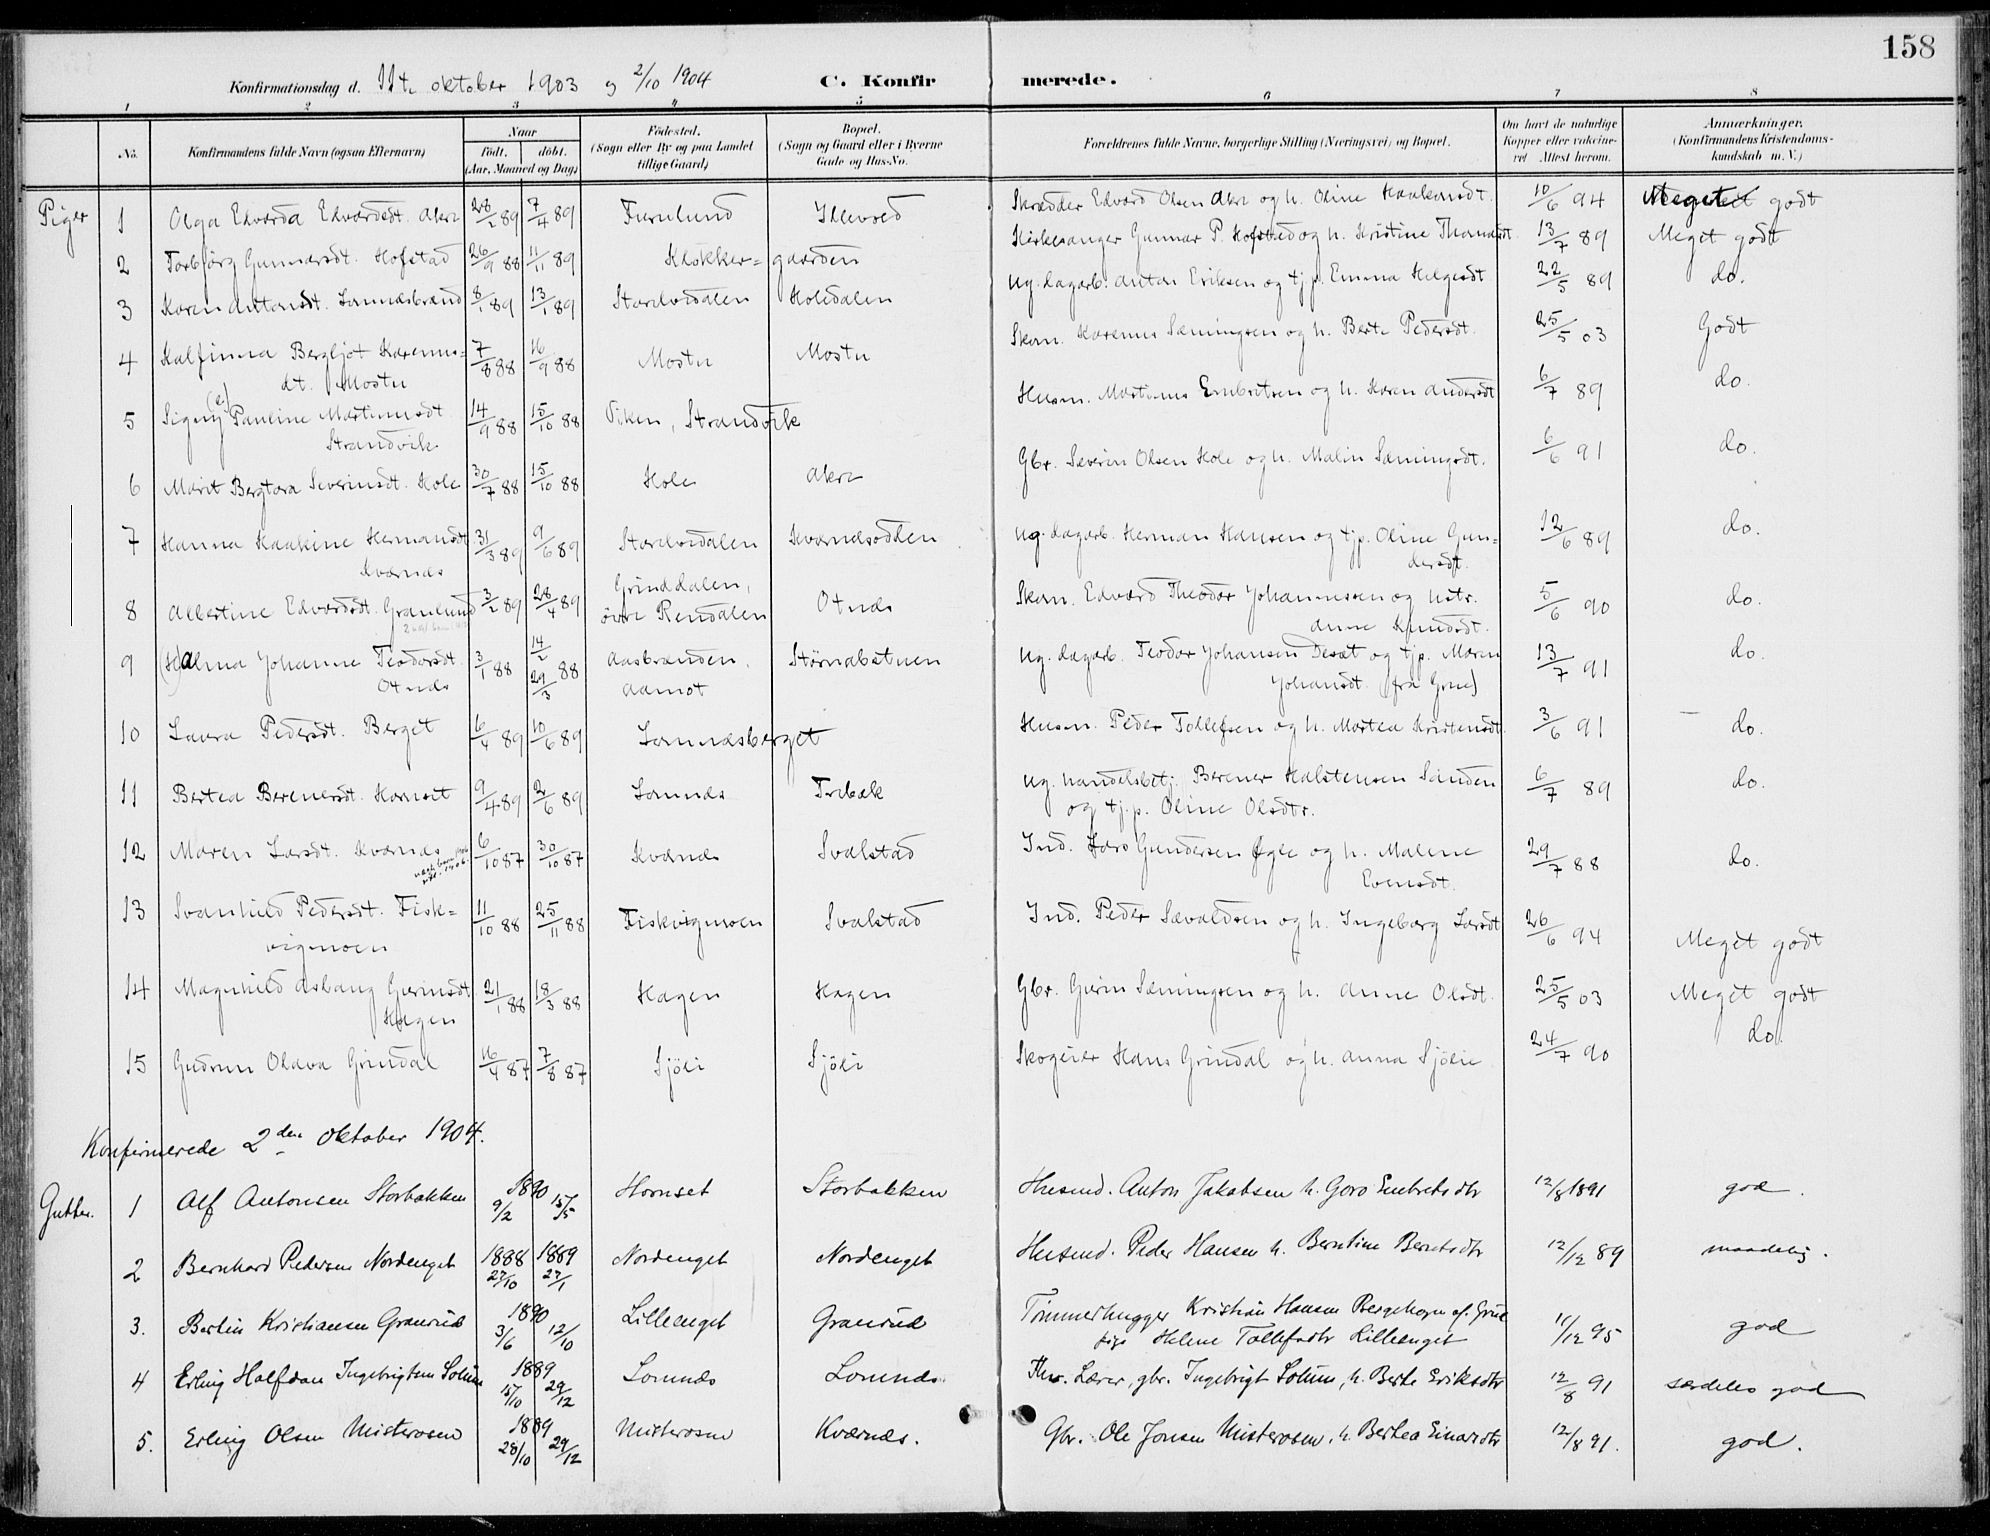 158
Konfirmationsdag d. 11te oktober 1903 og 2/10 1904
C. Konfirmerede.
1 2 3 4 5 6 7 8
No.
Konfirmandens fulde Navn (ogsaa Efternavn)
Naar
födt. döbt.
(Aar, Maaned og Dag)
Födested.
(Sogn eller By og paa Landet
tillige Gaard)
Bopæl.
(Sogn og Gaard eller i Byerne
Gade og Hus-No.
Forældrenes fulde Navne, borgerlige Stilling (Næringsvei) og Bopæl.
Om havt de naturlige
Kopper eller vakcine-
ret Attest herom.
Anmærkninger.
(Konfirmandens Kristendoms-
kundskab m. V.)
Piger
1 Olga Edvarda Edvardsdt. Akre 28/1 89 7/4 89 Furulund Illevold Skrædder Edvard Olsen Akre og h. Oline Haakensdt. 10/6 94 Meget godt
2 Torbjørg Gunnarsdt. Hofstad 26/9 88 11/11 89 Klokker-gaarden Kirkesanger Gunnar P. Hofstad og h. Kristine Thomasdt. 13/7 89 Meget godt
3 Karen Antonsdt. Lomnæsbrænd 8/1 89 13/1 89 Storelvdalen Holedalen ug. dagarb. Anton Eriksen og tj.p. Emma Helgesdt 22/5 89 do.
4 Halfinna Bergljot Karenus-
dt. Mostu 7/8 88 16/9 88 Mostu Mostu Skom. Karenus Sæmingsen og h. Berte Pedersdt. 25/5 03 Godt
5 Signy (e) Pauline Martinusdt
Strandvik 14/9 88 15/10 88 Viken, Strandvik Husm. Martinus Embretsen og h. Karen Andersdt 6/7 89 do.
6 Marit Bergtora Severinsdt. Hole 30/7 88 15/10 88 Hole Akre Gbr. Severin Olsen Hole og h. Malin Sæmingsdt. 6/6 91 do.
7 Hanna Haakine Hermansdt
Kværnæs 31/3 89 9/6 89 Storelvdalen Kværnæsodden ug. dagarb. Herman Hansen og tjp. Oline Gun-
dersdt. 12/6 89 do.
8 Albertine Edvardsdt. Granlund 3/2 89 28/4 89 Grinddalen,
øvre Rendalen Otnes Skom. Edvard Theodor Johannessen og hstr.
Anne Knudsdt. 5/6 90 do.
9 (H)alma Johanne Teodorsdt.
Otnes 3/1 88 14/2 29/3 88 Aasbrænden,
Aamot Størnæbstuen ug. dagarb. Teodor Johansen Deset og tjp. Maren
Johansdt. (fra Grue) 13/7 91 do.
10 Laura Pedersdt. Berget 6/4 89 10/6 89 Lomnæsberget Husm. Peder Tollefsen og h. Martea Kristensdt 3/6 91 – do.
11 Bertea Berenersdt. Hornset 9/4 89 2/6 89 Lomnæs Trebæk ug. handelsbetj. Berener Halstensen Sanden
og tj.p. Oline Olsdtr. 6/7 89 do.
12 Maren Larsdt. Kværnæs 6/10 87 30/10 87 Kværnæs Svalstad Ind. Lars Gundersen Øgle og h. Malene
Evensdt. 29/7 88 do.
13 Svanhild Pedersdt. Fisk-
vigmoen 11/10 88 25/11 88 Fiskvigmoen Svalstad Ind. Peder Sævaldsen og h. Ingeborg Larsdt 26/6 94 Meget godt
14 Magnhild Aslaug Gurinsdt
Hagen 21/1 88 18/3 88 Hagen Hagen Gbr. Gurin Sæmingsen og h. Anne Olsdt. 25/5 03 Meget godt
15 Gudrun Olava Grindal 16/4 87 7/8 87 Sjöli Sjöli Skogeier Hans Grindal og h. Anna Sjölie 24/7 90 do.
Konfirmerede 2den oktober 1904.
Gutter.
1 Alf Antonsen Storbakken 1890 9/2 15/5 Hornset Storbakken Husmd. Anton Jakobsen h. Goro Embretsdtr 12/8 1891 god.
2 Bernhard Pedersen Nordenget 1888 27/10 1889 27/1 Nordenget Nordenget Husmd. Peder Hansen h. Berntine Berntsdtr 12/12 89 maadelig.
3. Berlin Kristiansen Granrud 1890 3/6 12/10 Lilleenget Granrud Tömmerhugger Kristian Hansen Bergehogn af Grue
pige Helene Tollefsdtr Lilleenget 11/12 95 god
4 Erling Halfdan Ingebrigtsen Solum 1889 15/10 29/12 Lomnæs Lomnæs. Fhv. Lærer, gbr. Ingebrigt Solum, h. Berte Eriksdtr 12/8 91 særdeles god
5. Erling Olsen Misterosen 1889 28/10 29/12 Misterosen Kværnæs. Gbr. Ole Jonsen Misterosen, h. Bertea Einarsdtr 12/8 91. god.